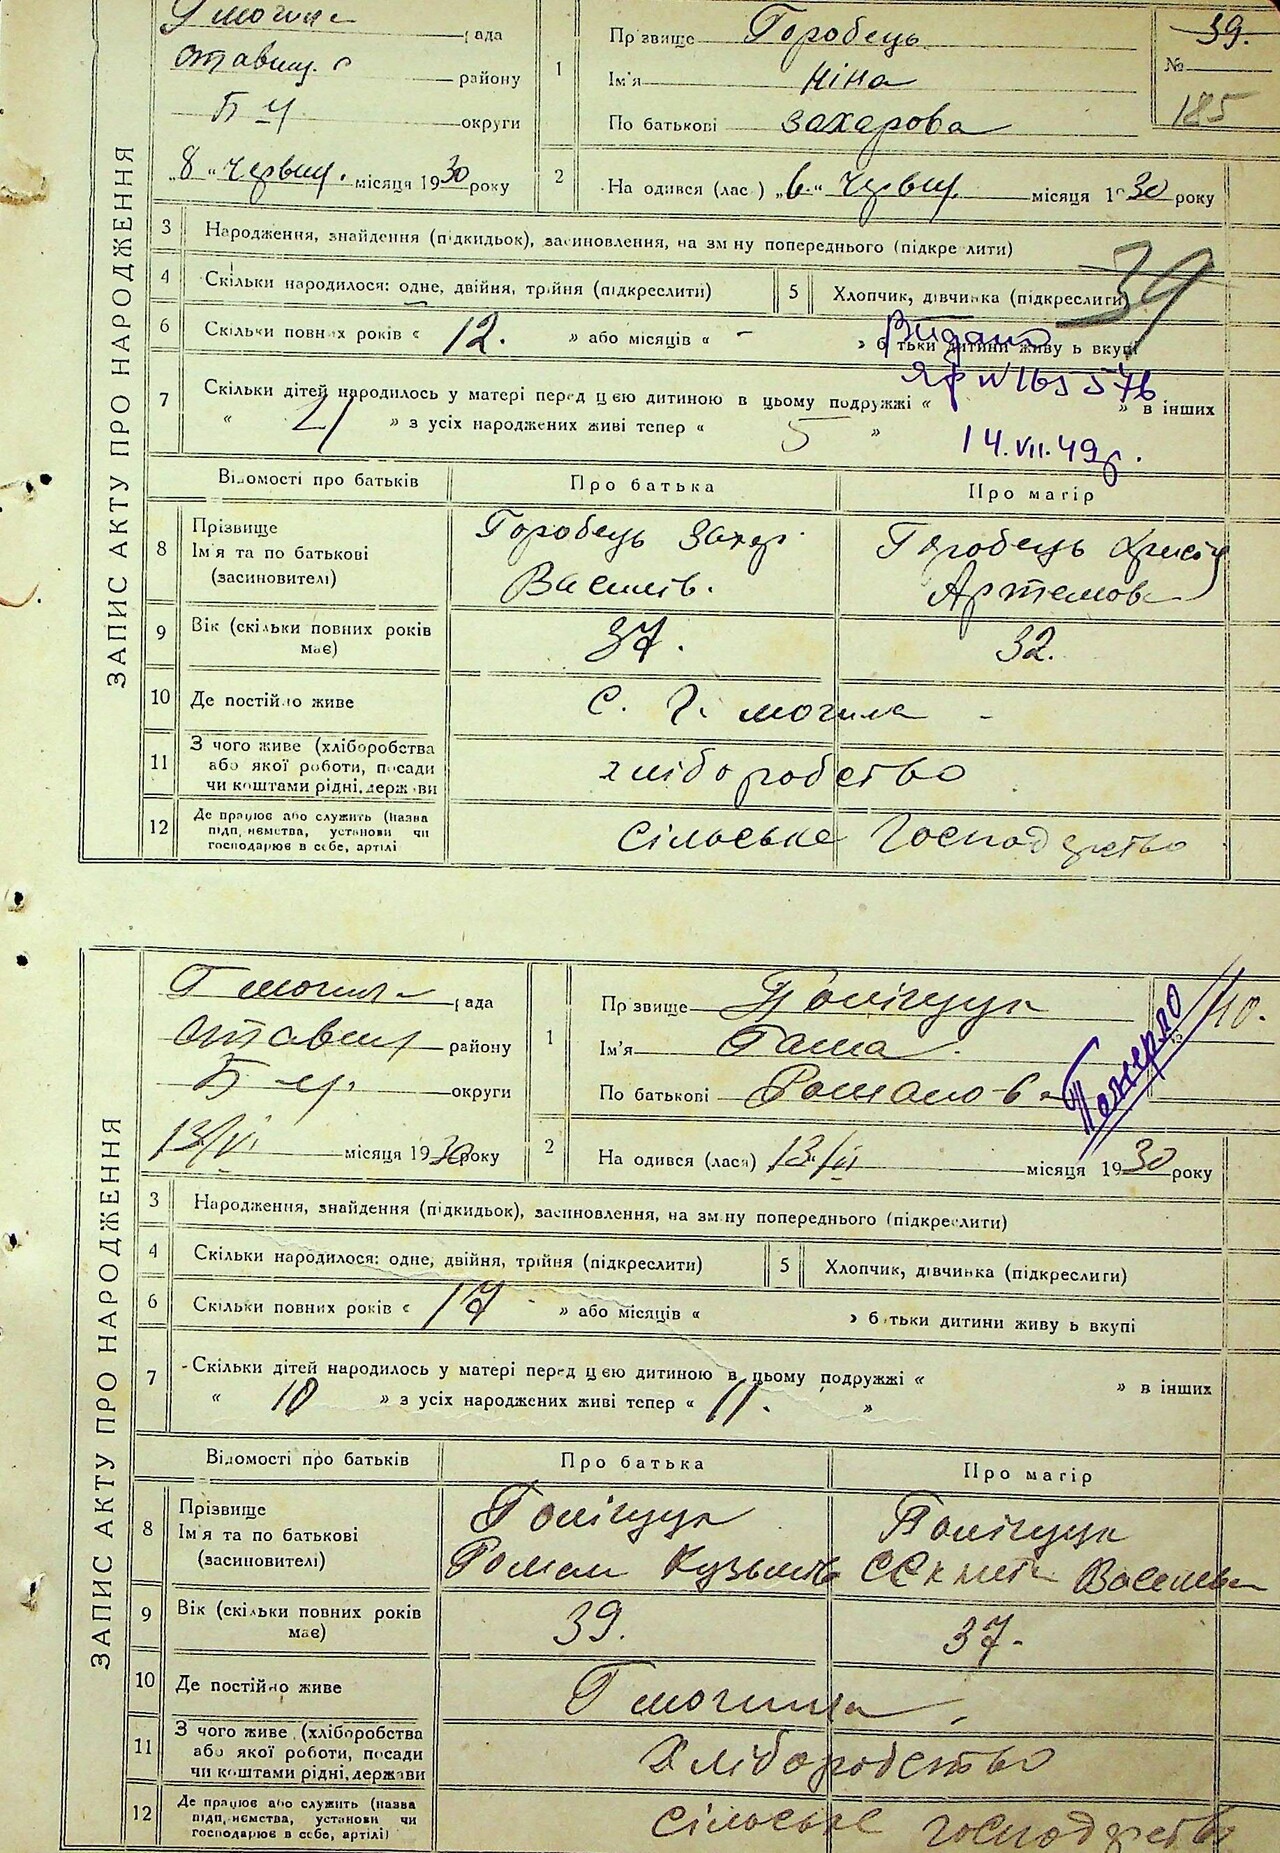 ЗАПИС АКТУ ПРО НАРОДЖЕННЯ
могила рада
Ставищ. району
Б Ц округи
„8“ червня. місяця 1930 року
1 Прізвище Горобець
Ім'я Ніна
По батькові Захарова
39.
№
185
2 На одився (лас ) „6“ червня. місяця 1930 року
3 Народження, знайдення (підкидьок), засиновлення, на зм ну попереднього (підкре лити)
39
4 Скільки народилося: одне, двійня, трійня (підкреслити)
5 Хлопчик, дівчинка (підкреслити)
6 Скільки повних років « 12. » або місяців « – » б тьки дитини живу ь вкупі
Видано
14.VII.49р.
7 Скільки дітей народилось у матері перед цією дитиною в цьому подружжі « » в інших
« » з усіх народжених живі тепер « 5 »
Відомості про батьків
Про батька
Про матір
8 Прізвище
Ім'я та по батькові
(засиновителі)
Горобець Захар
Василів.
Горобець Христя
Артемова
9 Вік (скільки повних років має)
37.
32.
10 Де постійно живе
с. Г. могила –
11 З чого живе (хліборобства
або якої роботи, посади
чи коштами рідні, держ ви
хліборобство
12 Де працює або служить (назва
підп, иємства, установи чи
господарює в себе, артілі
сільське господарство
ЗАПИС АКТУ ПРО НАРОДЖЕННЯ
Г могила рада
Ставищ району
Б ц. округи
13/VI місяця 1930 року
1 Прізвище Поліщук
Ім'я Гаша
По батькові Романова
Померло
40.
2 На одився (лася) 13/VI місяця 1930 року
3 Народження, знайдення (підкидьок), засиновлення, на зм ну попереднього (підкреслити)
4 Скільки народилося: одне, двійня, трійня (підкреслити)
5 Хлопчик, дівчинка (підкреслити)
6 Скільки повних років « 17 » або місяців « » б тьки дитини живу ь вкупі
7 Скільки дітей народилось у матері перед цією дитиною в цьому подружжі « » в інших
« 10 » з усіх народжених живі тепер « 11. »
Відомості про батьків
Про батька
Про матір
8 Прізвище
Ім'я та по батькові
(засиновителі)
Поліщук
Роман Кузьмів
Поліщук
Василева
9 Вік (скільки повних років має)
39.
37.
10 Де постійно живе
Г могила
11 З чого живе (хліборобства
або якої роботи, посади
чи коштами рідні, держави
Хліборобство
12 Де працює або служить (назва
підп, иємства, установи чи
господарює в себе, артілі)
сільське господарство